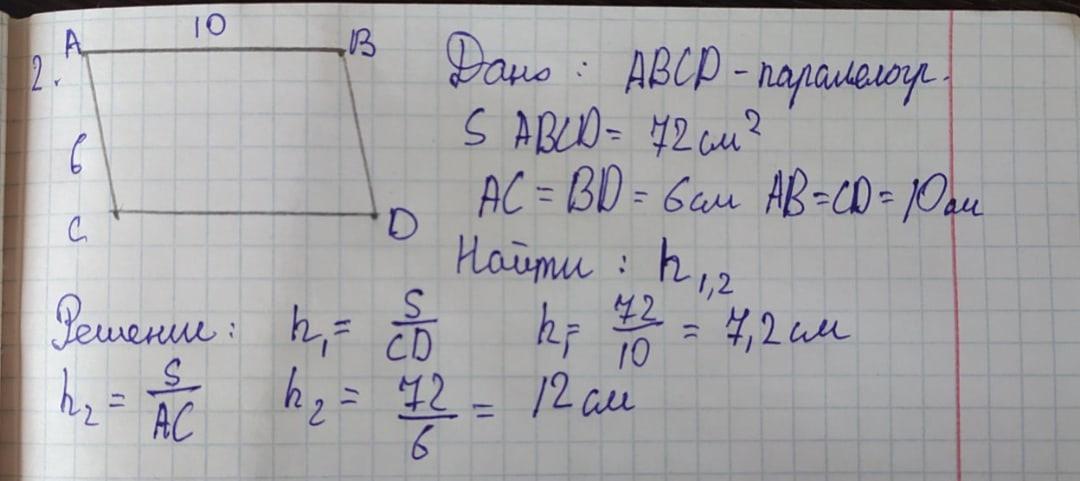 10
A B
2.
6
C D
Дано: ABCD - паралелогр.
S ABCD = 72 см²
AC = BD = 6 см AB = CD = 10 см
Найти: h₁,₂
Решение: h₁ = S/CD h₁ = 72/10 = 7,2 см
h₂ = S/AC h₂ = 72/6 = 12 см